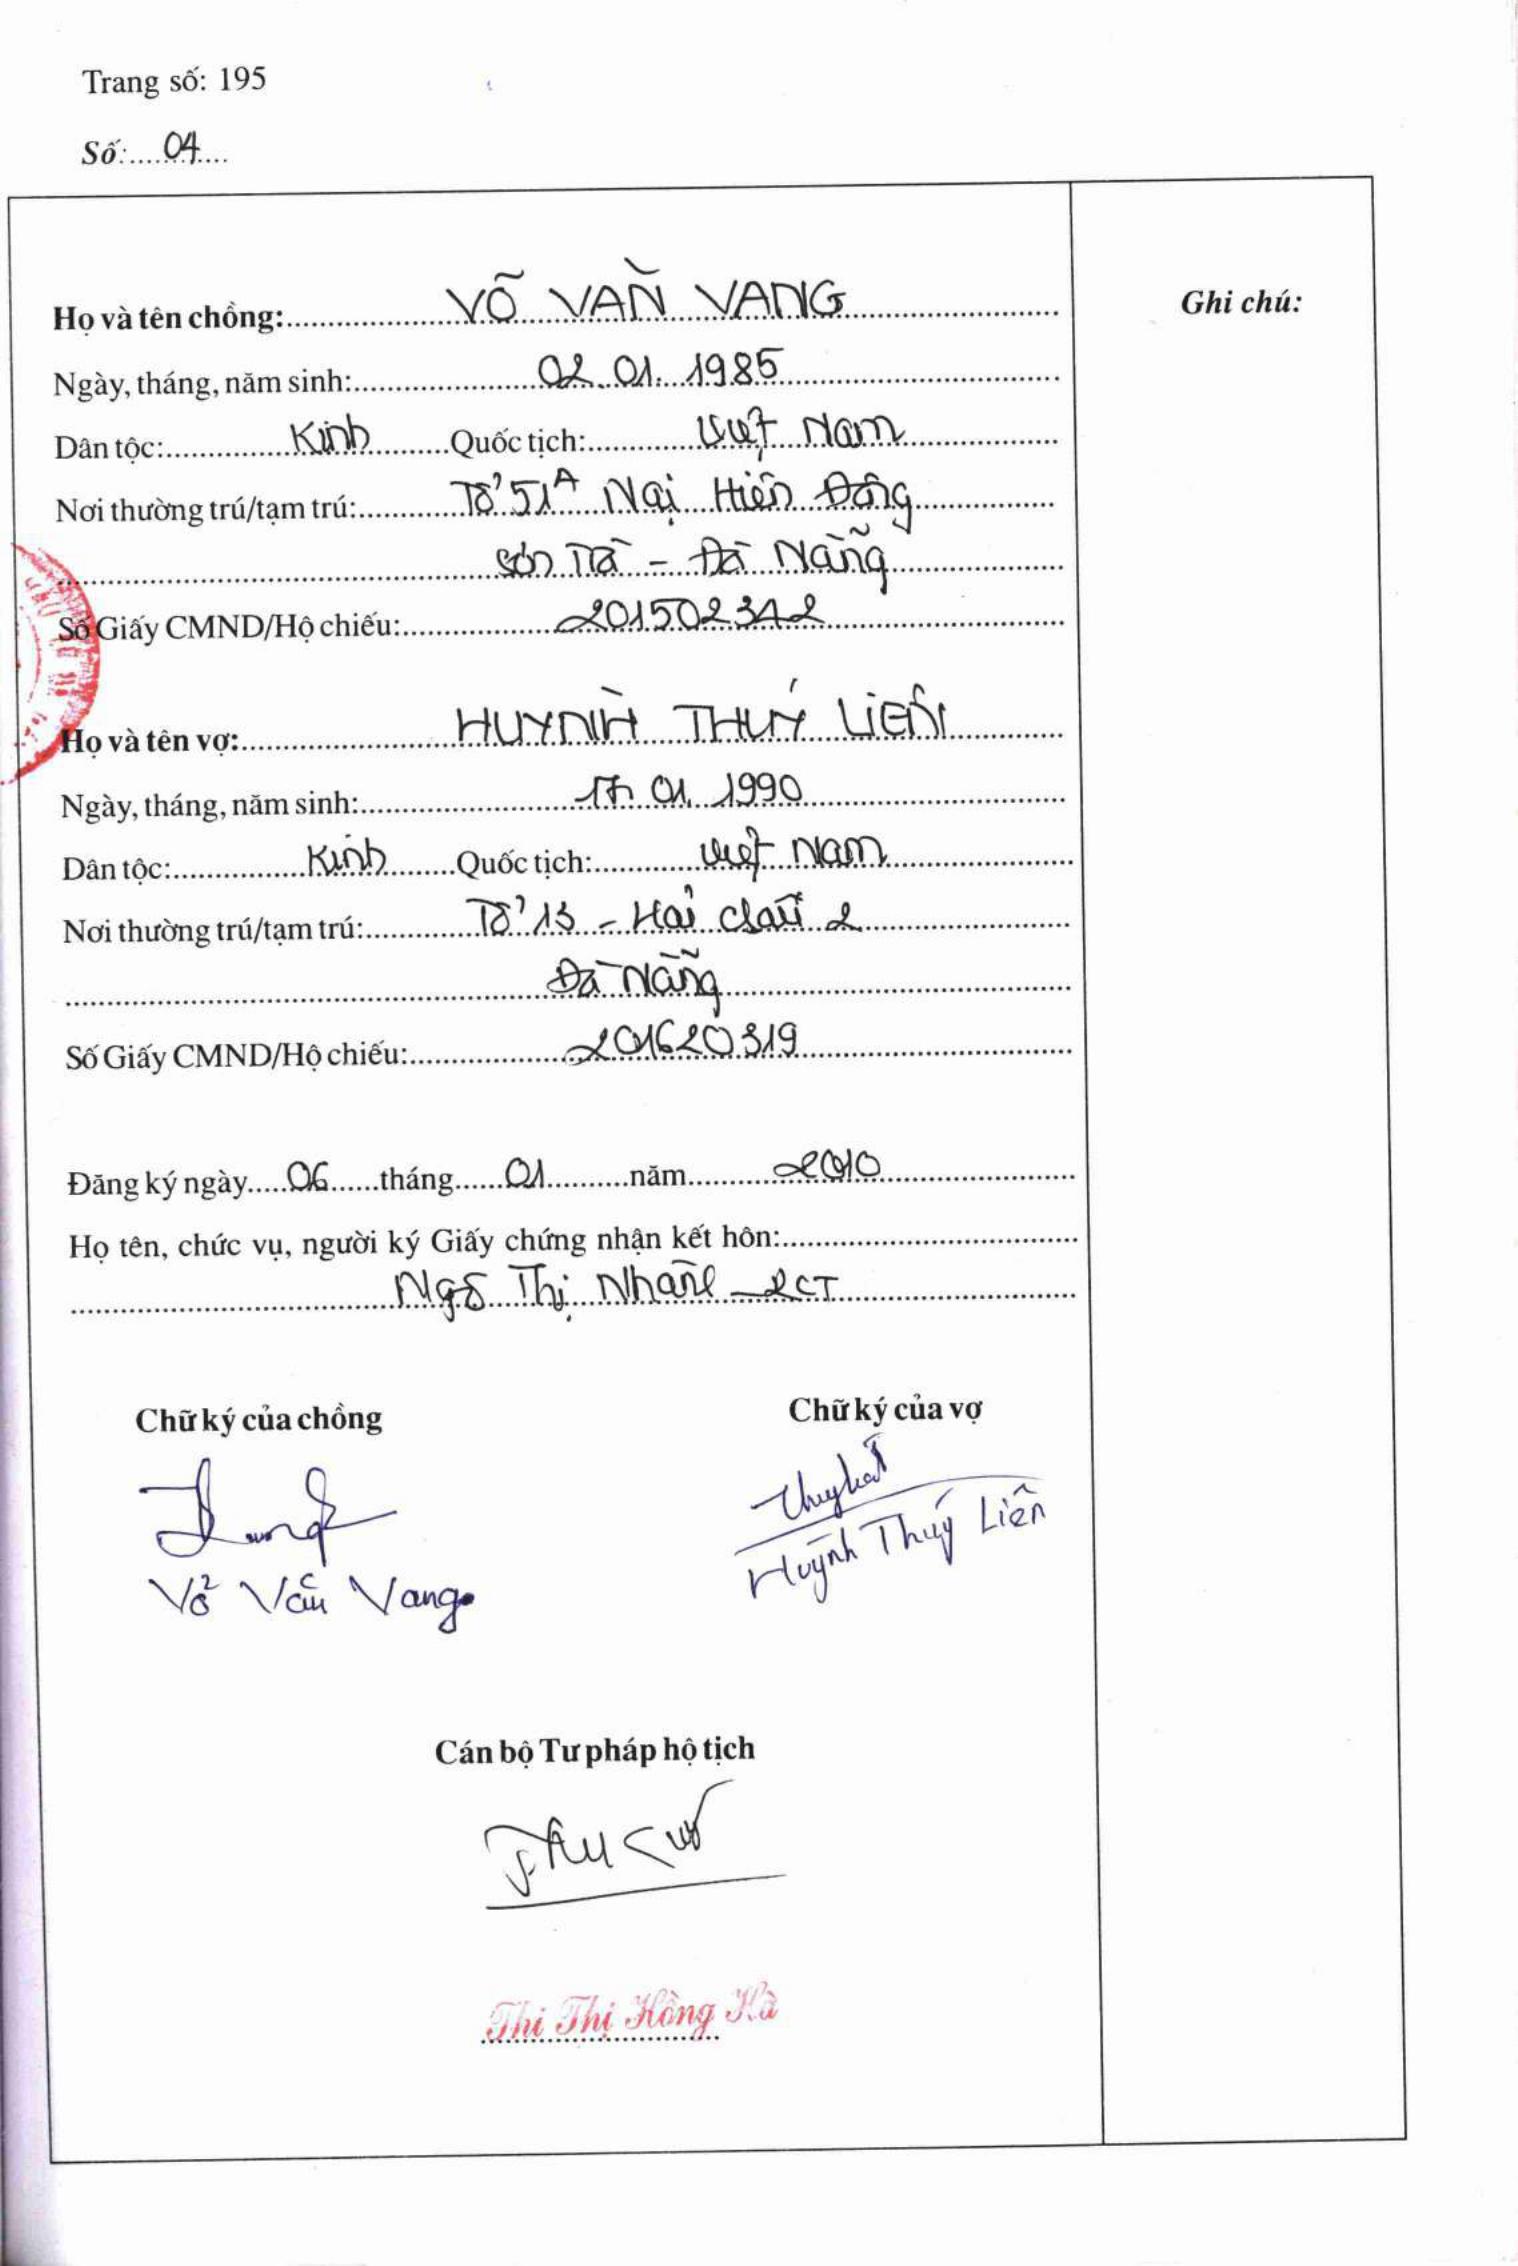 Trang số: 195
Số: 04
Ghi chú:
Họ và tên chồng: VÕ VĂN VANG
Ngày, tháng, năm sinh: 02.01.1985
Dân tộc: Kinh Quốc tịch: Việt Nam
Nơi thường trú/tạm trú: Tổ 51A Nại Hiên Đông
Sơn Trà - Đà Nẵng
Số Giấy CMND/Hộ chiếu: 201502342
Họ và tên vợ: HUỲNH THUÝ LIÊN
Ngày, tháng, năm sinh: 17.01.1990
Dân tộc: Kinh Quốc tịch: Việt Nam
Nơi thường trú/tạm trú: Tổ 13 - Hải Châu 2
Đà Nẵng
Số Giấy CMND/Hộ chiếu: 201620319
Đăng ký ngày 06 tháng 01 năm 2010
Họ tên, chức vụ, người ký Giấy chứng nhận kết hôn:
Ngô Thị Nhàn - PCT
Chữ ký của chồng
Chữ ký của vợ
Võ Văn Vang
Huỳnh Thuý Liên
Cán bộ Tư pháp hộ tịch
Thi Thị Hồng Hà